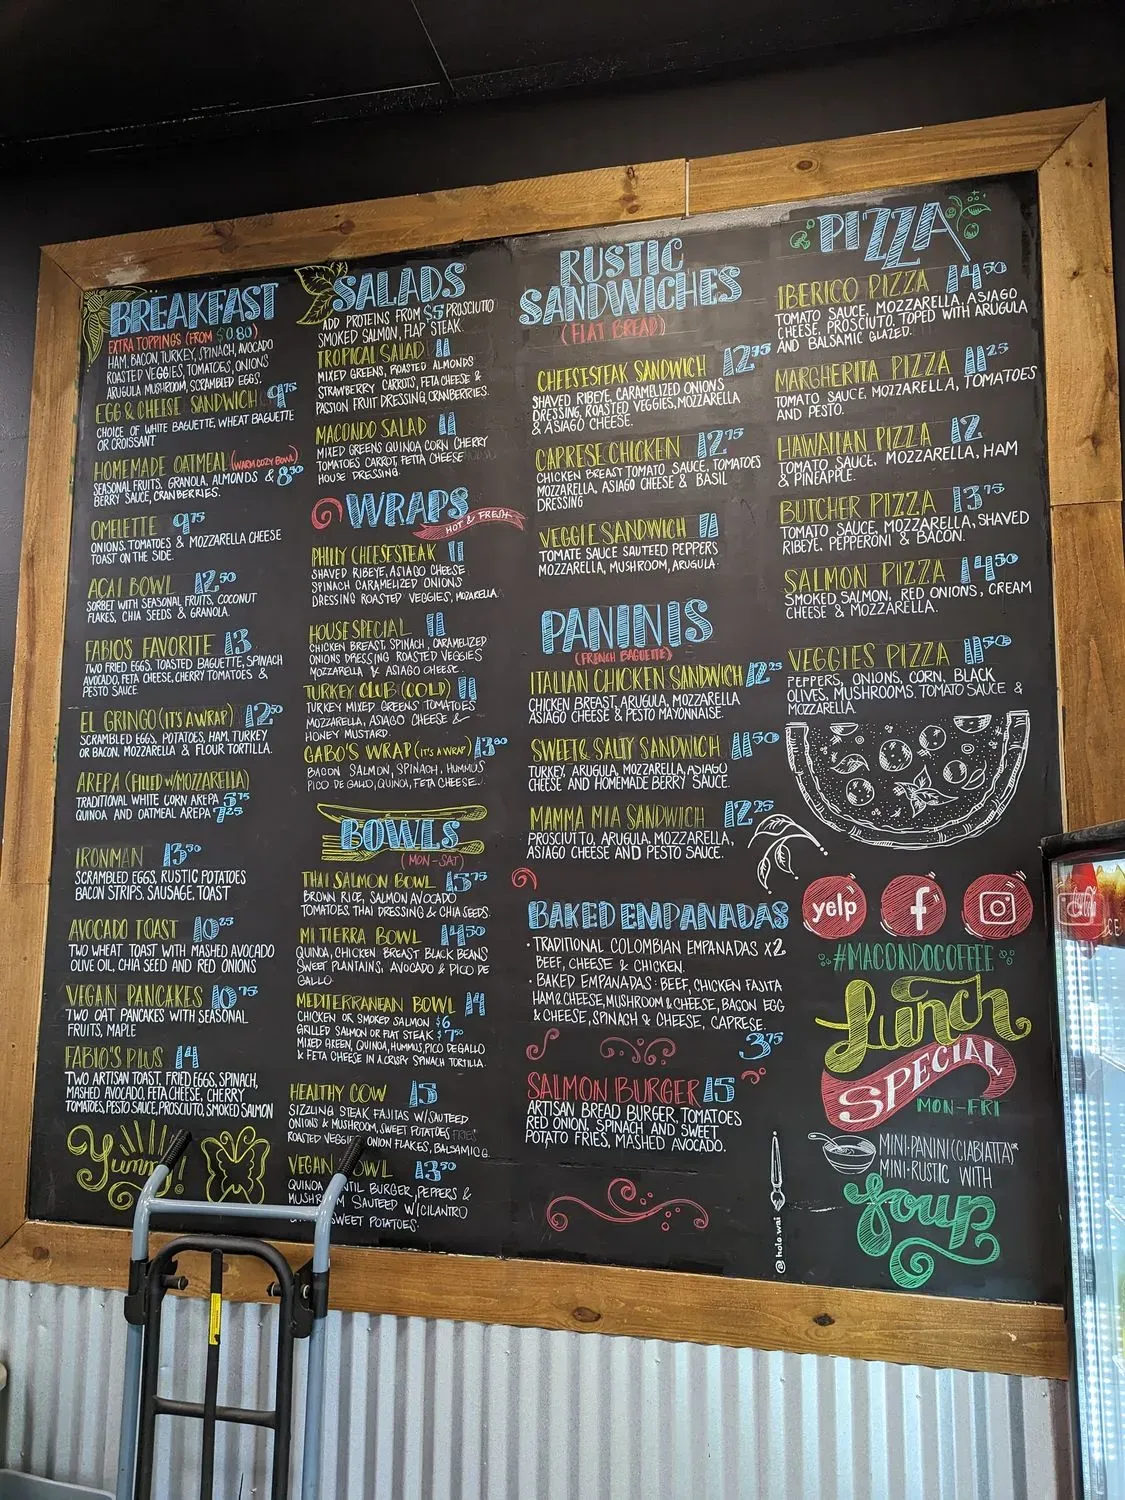 BREAKFAST
EXTRA TOPPINGS (FROM $0.80)
HAM, BACON, TURKEY, SPINACH, AVOCADO
ROASTED VEGGIES, TOMATOES, ONIONS
ARUGULA MUSHROOM, SCRAMBLED EGGS.
EGG & CHEESE SANDWICH 9.75
CHOICE OF WHITE BAGUETTE, WHEAT BAGUETTE
OR CROISSANT
HOMEMADE OATMEAL (WARM COZY BOWL)
SEASONAL FRUITS, GRANOLA, ALMONDS & 8.50
BERRY SAUCE, CRANBERRIES.
OMELETTE 9.75
ONIONS, TOMATOES & MOZZARELLA CHEESE
TOAST ON THE SIDE.
ACAI BOWL 12.50
SORBET WITH SEASONAL FRUITS, COCONUT
FLAKES, CHIA SEEDS & GRANOLA.
FABIO'S FAVORITE 13
TWO FRIED EGGS, TOASTED BAGUETTE, SPINACH
AVOCADO, FETA CHEESE, CHERRY TOMATOES &
PESTO SAUCE
EL GRINGO (IT'S A WRAP) 12.50
SCRAMBLED EGGS, POTATOES, HAM, TURKEY
OR BACON, MOZZARELLA & FLOUR TORTILLA.
AREPA (FILLED W/MOZZARELLA)
TRADITIONAL WHITE CORN AREPA 5.75
QUINOA AND OATMEAL AREPA 7.25
IRONMAN 13.50
SCRAMBLED EGGS, RUSTIC POTATOES
BACON STRIPS, SAUSAGE, TOAST
AVOCADO TOAST 10.25
TWO WHEAT TOAST WITH MASHED AVOCADO
OLIVE OIL, CHIA SEED AND RED ONIONS
VEGAN PANCAKES 10.75
TWO OAT PANCAKES WITH SEASONAL
FRUITS, MAPLE
FABIO'S PLUS 14
TWO ARTISAN TOAST, FRIED EGGS, SPINACH,
MASHED AVOCADO, FETA CHEESE, CHERRY
TOMATOES, PESTO SAUCE, PROSCIUTO, SMOKED SALMON
SALADS
ADD PROTEINS FROM $5 PROSCIUTIO
SMOKED SALMON, FLAP STEAK.
TROPICAL SALAD 11
MIXED GREENS, ROASTED ALMONDS
STRAWBERRY CARROTS, FETA CHEESE &
PASSION FRUIT DRESSING, CRANBERRIES.
MACONDO SALAD 11
MIXED GREENS QUINOA CORN CHERRY
TOMATOES CARROT, FETTA CHEESE
HOUSE DRESSING.
WRAPS
HOT & FRESH
PHILLY CHEESESTEAK 11
SHAVED RIBEYE, ASIAGO CHEESE
SPINACH CARAMELIZED ONIONS
DRESSING ROASTED VEGGIES, MOZARELLA
HOUSE SPECIAL 11
CHICKEN BREAST, SPINACH, CARAMELIZED
ONIONS DRESSING ROASTED VEGGIES
MOZZARELLA & ASIAGO CHEESE.
TURKEY CLUB (COLD) 11
TURKEY MIXED GREENS TOMATOES
MOZZARELLA, ASIAGO CHEESE &
HONEY MUSTARD.
GABO'S WRAP (IT'S A WRAP) 13.80
BACON SALMON, SPINACH, HUMMUS
PICO DE GALLO, QUINOI, FETA CHEESE.
BOWLS
(MON-SAT)
THAI SALMON BOWL 15.75
BROWN RICE, SALMON AVOCADO
TOMATOES, THAI DRESSING & CHIA SEEDS.
MI TIERRA BOWL 14.50
QUINOA, CHICKEN BREAST BLACK BEANS
SWEET PLANTAINS, AVOCADO & PICO DE
GALLO
MEDITERRANEAN BOWL 14
CHICKEN OR SMOKED SALMON $6
GRILLED SALMON OR FLAT STEAK $7.50
MIXED GREEN, QUINOA, HUMMUS, PICO DE GALLO
& FETA CHEESE IN A CRISPY SPINACH TORTILLA.
HEALTHY COW 15
SIZZLING STEAK FAJITAS W/SAUTEED
ONIONS & MUSHROOM, SWEET POTATOES FRIES
ROASTED VEGGIES ONION FLAKES, BALSAMIC G.
VEGAN BOWL 13.50
QUINOA LENTIL BURGER, PEPPERS &
MUSHROOM SAUTEED W/CILANTRO
SWEET POTATOES.
RUSTIC
SANDWICHES
(FLAT BREAD)
CHEESESTEAK SANDWICH 12.95
SHAVED RIBEYE, CARAMELIZED ONIONS
DRESSING, ROASTED VEGGIES, MOZZARELLA
& ASIAGO CHEESE.
CAPRESE CHICKEN 12.75
CHICKEN BREAST TOMATO SAUCE, TOMATOES
MOZZARELLA, ASIAGO CHEESE & BASIL
DRESSING
VEGGIE SANDWICH 11
TOMATE SAUCE SAUTEED PEPPERS
MOZZARELLA, MUSHROOM, ARUGULA.
PANINIS
(FRENCH BAGUETTE)
ITALIAN CHICKEN SANDWICH 12.25
CHICKEN BREAST, ARUGULA, MOZZARELLA
ASIAGO CHEESE & PESTO MAYONNAISE.
SWEET & SALTY SANDWICH 11.50
TURKEY, ARUGULA, MOZZARELLA, ASIAGO
CHEESE AND HOMEMADE BERRY SAUCE.
MAMMA MIA SANDWICH 12.25
PROSCIUTTO, ARUGULA, MOZZARELLA,
ASIAGO CHEESE AND PESTO SAUCE.
BAKED EMPANADAS
• TRADITIONAL COLOMBIAN EMPANADAS X2.
BEEF, CHEESE & CHICKEN.
• BAKED EMPANADAS: BEEF, CHICKEN FAJITA
HAM & CHEESE, MUSHROOM & CHEESE, BACON EGG
& CHEESE, SPINACH & CHEESE, CAPRESE.
3.75
SALMON BURGER 15
ARTISAN BREAD BURGER, TOMATOES
RED ONION, SPINACH AND SWEET
POTATO FRIES, MASHED AVOCADO.
PIZZA
IBERICO PIZZA 14.50
TOMATO SAUCE, MOZZARELLA, ASIAGO
CHEESE, PROSCIUTO, TOPED WITH ARUGULA
AND BALSAMIC GLAZED.
MARGHERITA PIZZA 11.25
TOMATO SAUCE, MOZZARELLA, TOMATOES
AND PESTO.
HAWAIIAN PIZZA 12
TOMATO SAUCE, MOZZARELLA, HAM
& PINEAPPLE.
BUTCHER PIZZA 13.75
TOMATO SAUCE, MOZZARELLA, SHAVED
RIBEYE, PEPPERONI & BACON.
SALMON PIZZA 14.50
SMOKED SALMON, RED ONIONS, CREAM
CHEESE & MOZZARELLA.
VEGGIES PIZZA 11.50
PEPPERS, ONIONS, CORN, BLACK
OLIVES, MUSHROOMS, TOMATO SAUCE &
MOZZARELLA.
yelp
f
#MACONDOCOFFEE
Lunch
SPECIAL
MON-FRI
MINI-PANINI (CIABIATTA) OR
MINI-RUSTIC WITH
Soup
Yumm!
@holo.wai